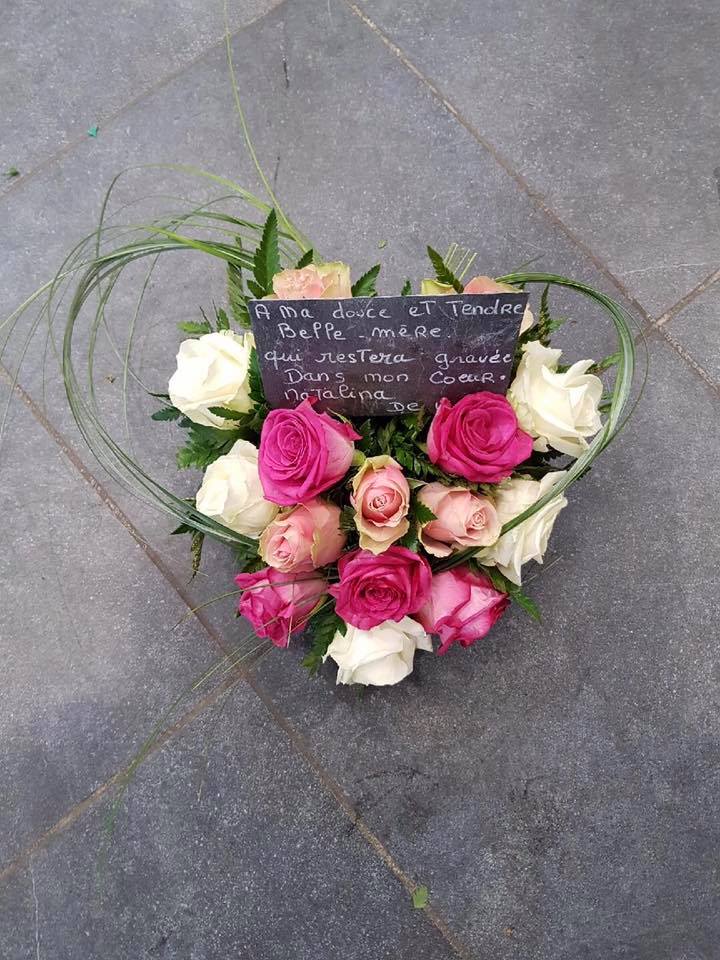 A Ma douce eT Tendre
Belle-mêre.
qui resTera gravée
Dans mon Coeur.
Natalina
De